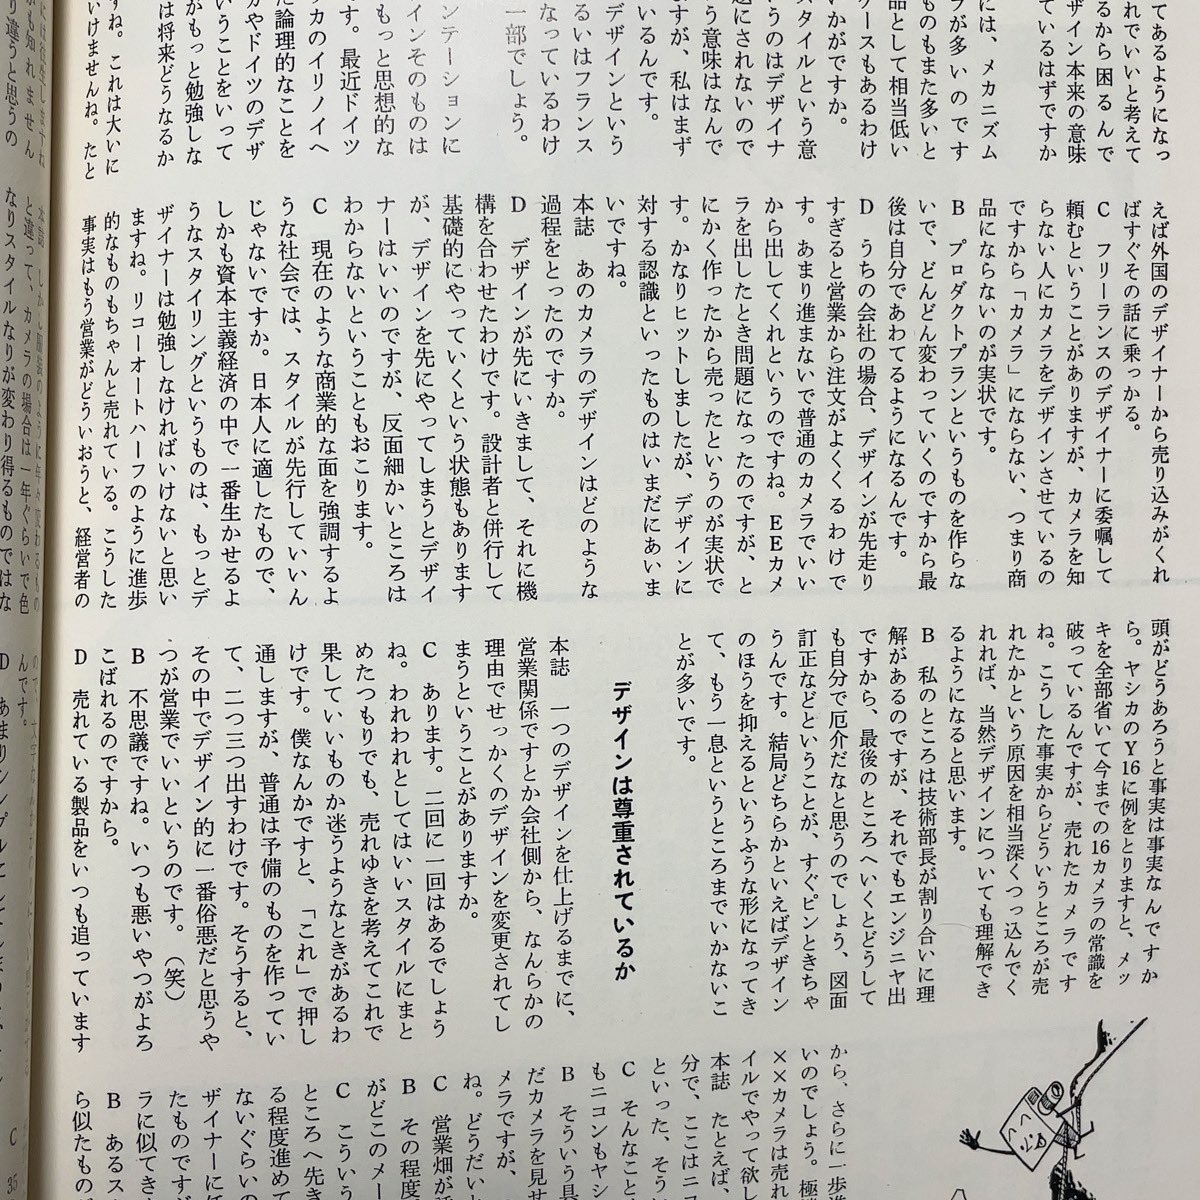 てあるようになっ
れでいいと考えて
るから困るんで
ザイン本来の意味
ているはずですか
には、メカニズム
ラが多いのです
ものもまた多いと
品として相当低い
ケースもあるわけ
いかがですか。
スタイルという意
うのはデザイナ
題にされないので
う意味はなんで
ますが、私はまず
いるんです。
デザインという
るいはフランス
なっているわけ
一部でしょう。
ンテーションに
インそのものは
もっと思想的な
す。最近ドイツ
リカのイリノイへ
た論理的なことを
かやドイツのデザ
いうことをいって
がもっと勉強しな
は将来どうなるか
すね。これは大いに
いけませんね。たと
えば外国のデザイナーから売り込みがくれ
ばすぐその話に乗っかる。
C　フリーランスのデザイナーに委嘱して
頼むということがありますが、カメラを知
らない人にカメラをデザインさせているの
ですから「カメラ」にならない、つまり商
品にならないのが実状です。
B　プロダクトプランというものを作らな
いで、どんどん変わっていくのですから最
後は自分であわてるようになるんです。
D　うちの会社の場合、デザインが先走り
すぎると営業から注文がよくくるわけで
す。あまり進まないで普通のカメラでいい
から出してくれというのですね。EEカメ
ラを出したとき問題になったのですが、と
にかく作ったから売ったというのが実状で
す。かなりヒットしましたが、デザインに
対する認識といったものはいまだにあいま
いですね。
本誌　あのカメラのデザインはどのような
過程をとったのですか。
D　デザインが先にいきまして、それに機
構を合わせたわけです。設計者と併行して
基礎的にやっていくという状態もあります
が、デザインを先にやってしまうとデザイ
ナーはいいのですが、反面細かいところは
わからないということもおこります。
C　現在のような商業的な面を強調するよ
うな社会では、スタイルが先行していいん
じゃないですか。日本人に適したもので、
しかも資本主義経済の中で一番生かせるよ
うなスタイリングというものは、もっとデ
ザイナーは勉強しなければいけないと思い
ますね。リコーオートハーフのように進歩
的なものもちゃんと売れている。こうした
事実はもう営業がどういおうと、経営者の
頭がどうあろうと事実は事実なんですか
ら。ヤシカのY16に例をとりますと、メッ
キを全部省いて今までの16カメラの常識を
破っているんですが、売れたカメラです
ね。こうした事実からどういうところが売
れたかという原因を相当深くつっ込んでく
れれば、当然デザインについても理解でき
るようになると思います。
B　私のところは技術部長が割り合いに理
解があるのですが、それでもエンジニヤ出
ですから、最後のところへいくとどうして
も自分で厄介だなと思うのでしょう、図面
訂正などということが、すぐピンときちゃ
うんです。結局どちらかといえばデザイン
のほうを抑えるというふうな形になってき
て、もう一息というところまでいかないこ
とが多いです。
デザインは尊重されているか
本誌　一つのデザインを仕上げるまでに、
営業関係ですとか会社側から、なんらかの
理由でせっかくのデザインを変更されてし
まうということがありますか。
C　あります。二回に一回はあるでしょう
ね。われわれとしてはいいスタイルにまと
めたつもりでも、売れゆきを考えてこれで
果していいものか迷うようなときがあるわ
けです。僕なんかですと、「これ」で押し
通しますが、普通は予備のものを作ってい
て、二つ三つ出すわけです。そうすると、
その中でデザイン的に一番俗悪だと思うや
つが営業でいいというのです。（笑）
B　不思議ですね。いつも悪いやつがよろ
こばれるのですから。
D　売れている製品をいつも追っています
から、さらに一歩進
いのでしょう。極端
××カメラは売れ
イルでやって欲し
本誌　たとえば、
分で、ここはニコ
といった、そうい
C　そんなこと
もニコンもヤシ
B　そういう具
だカメラを見せ
メラですが、
ね。どうだい
C　営業畑が
B　その程度
がどこのメー
C　こういう
ところへ先き
る程度進めて
ないぐらいの
ザイナーに
たものですが
ラに似てき
B　あるス
ら似たもの
と違って、カメラの場合は一年ぐらいで色
なりスタイルなりが変わり得るものではな
んです。
35